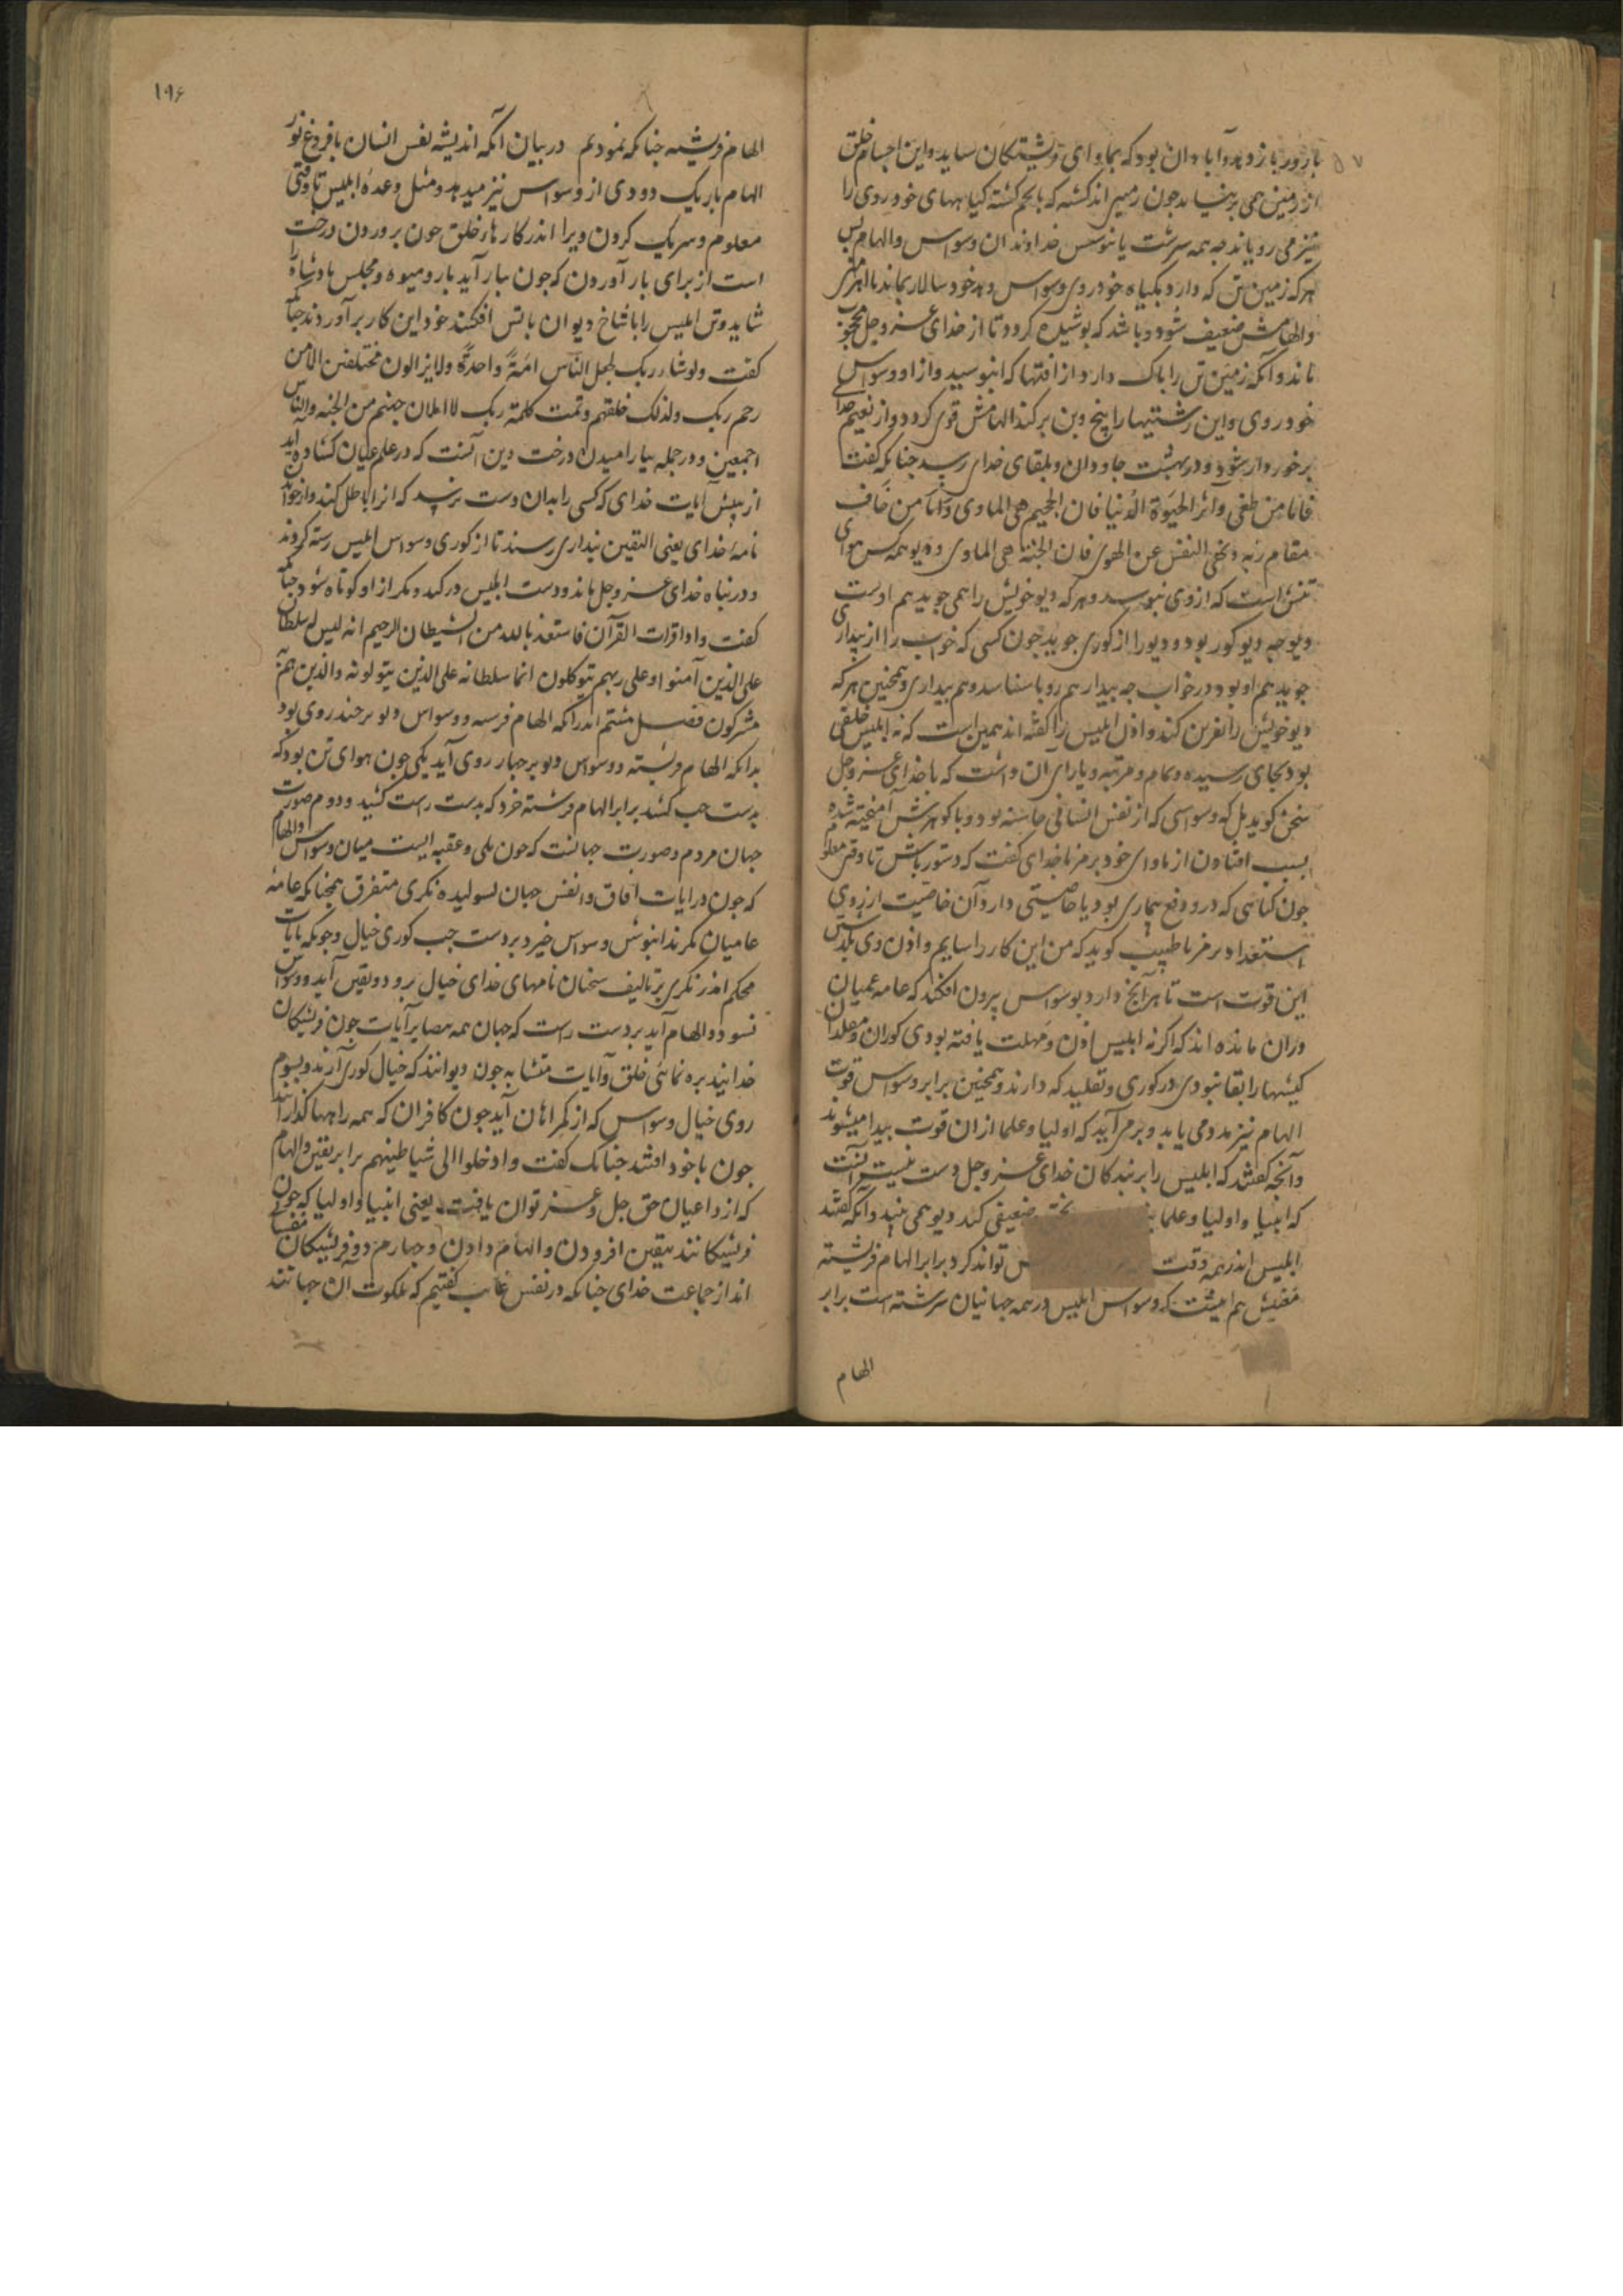 بارور باز و بدو آبادان بود که بماوای فرشتکان ساید و این اجسام خلق
از زمین همی برنیاید جون زمین اند کشته که باتخم کشته کیاههای خود روی را
نیز می رویاند جه همه سرشت یا نوسس خداوند ان وسواس و الهام پس
هر که زمین تن که دارد بکیاه خودروی وسواس دهد خود سالار بماند با
والهامش ضعیف شود و باشد که پوشیده کردد تا از خدای عز و جل محجوب
ماند و آنکه زمین تن را پاک دارد از افتها که انبوسید و از او وسواس
خود روی و این رشتیها را بیخ و بن برکند الهامش قوی کردد و از نعیم خدای
برخوردار شود و در بهشت جاودان و بلقای خدای رسد جنانکه کفت
فاما من طغی و آثر الحیوة الدنیا فان الجحیم هی الماوی و اما من خاف
مقام ربه و نهی النفس عن الهوی فان الجنة هی الماوی و دیو همه کس هوای
تنش است که از وی نبوسد و هر که دیو خویش را همی جوید هم اوست
دیو جه دیو کور بود و دیو را از کوری جوید جون کسی که خواب را از بیداری
جوید هم او بود در خواب جه بیدار هم رویا سناسد و هم بیداری و همجنین هر که
دیو خویش را نفرین کند و اذن ابلیس را کفته اند همین است که نه ابلیس خلقی
بود بجای رسیده و تمام و مرتبه و یارای آن داشت که با خدای عز و جل
سخن کوید بل که وسواسی که از نفس انسانی خاسته بود و با کوهرش آمیخته شده
بسبب افتادن از ماوای خود برمز با خدای کفت که دستور باش تا وقتی معلوم
جون کناهی که در و دفع بیماری بود یا خاصیتی دارد آن خاصیت از روی
استعداد برمز با طبیب کوید که من این کار را سایم و اذن وی بلد
این قوت است تا هر آنج دارد بوسواس بیرون افکند که عامه عمیان
دران مانده اند که اکر نه ابلیس اذن و مهلت یافته بودی کوران و مقلدان
کیشها را بقا نبودی در کوری و تقلید که دارند و همجنین برابر وسواس قوت
الهام نیز مدد می یابد و برمی آید که اولیا و علما از ان قوت بیدا میشوند
و آنجه کفتند که ابلیس را بر بندکان خدای عز و جل دست نیست آنست
که انبیا و اولیا و علما ضعیفی کند دیو همی بیند و آنکه کفتند
ابلیس اندر همه وقت تواند کرد برابر الهام فرشته
مغیش هم اینست که وسواس ابلیس در همه جهانیان سرشته است برابر
الهام
۱۹۶
الهام فرشته جنانکه نمودیم در بیان آنکه اندیشه نفس انسان با فروغ نور
الهام باریک دودی از وسواس نیز میدهد و مثل وعده ابلیس تا وقتی
معلوم و سریک کردن ویرا اندر کارهاء خلق جون پروردن درخت
است از برای بار آوردن که جون ببار آید بار و میوه و مجلس بادشاه را
شاید و تن ابلیس را با شاخ دیوان باتس افکند خود این کار برآوردند جنانکه
کفت ولوشاء ربک لجعل الناس امة واحدة ولایزالون مختلفین الا من
رحم ربک ولذلک خلقهم و تمت کلمة ربک لا املان جهنم من الجنة والناس
اجمعین و در جمله بیارامیدن درخت دین آنست که در علم عیان کشاده اید
از پیش آیات خدای که کسی را بدان دست نرسد که انرا باطل کند و از خواندن
نامه خدای یعنی الیقین بیداری رسند تا از کوری وسواس ابلیس رسته کردند
و در پناه خدای عز و جل ماند و دست ابلیس در کید و مکر از او کوتاه شود جنانکه
کفت و اذا قرات القرآن فاستعذ بالله من الشیطان الرجیم انه لیس له سلطان
علی الذین آمنوا و علی ربهم یتوکلون انما سلطانه علی الذین یتولونه و الذین هم به
مشرکون فصل هشتم اندر آنکه الهام فرسته و وسواس دیو بر جند روی بود
بدانکه الهام فرشته و وسواس دیو بر جهار روی آید یکی جون هوای تن بود که
بدست جب کشد برابر الهام فرشته خرد که بدست راست کشد و دوم صورت
جهان مردم و صورت جهانست که جون پلی و عقبه ایست میان وسواس و الهام
که جون در آیات افاق و انفس جهان نسولیده نکری متفرق همجنانکه عامه
عامیان نکرند انبوش وسواس خیزد بر دست جب کوری خیال و جونکه بایات
محکم اندر نکری بر تالیف سخنان نامهای خدای خیال برود و یقین آید و وسواس
نسود و الهام آید بر دست راست که جهان همه بصایر آیات جون فریشتکان
خدایند بره نمائی خلق و آیات متشابه جون دیوانند که خیال کوری آرند و سوم
روی خیال وسواس که از کمراهان آید جون کافران که همه راهها کذارند
جون باخود افتند جنانک کفت و اذ خلوا الی شیاطینهم برابر یقین و الهام
که از داعیان حق جل و عز توان یافت یعنی انبیا و اولیا که جون
فریشتکانند بیقین افزودن و الهام دادن و جهارم دو فریشتکان
اند از جماعت خدای جنانکه در نفس غایب کفتیم که ملکوت آن جهانند